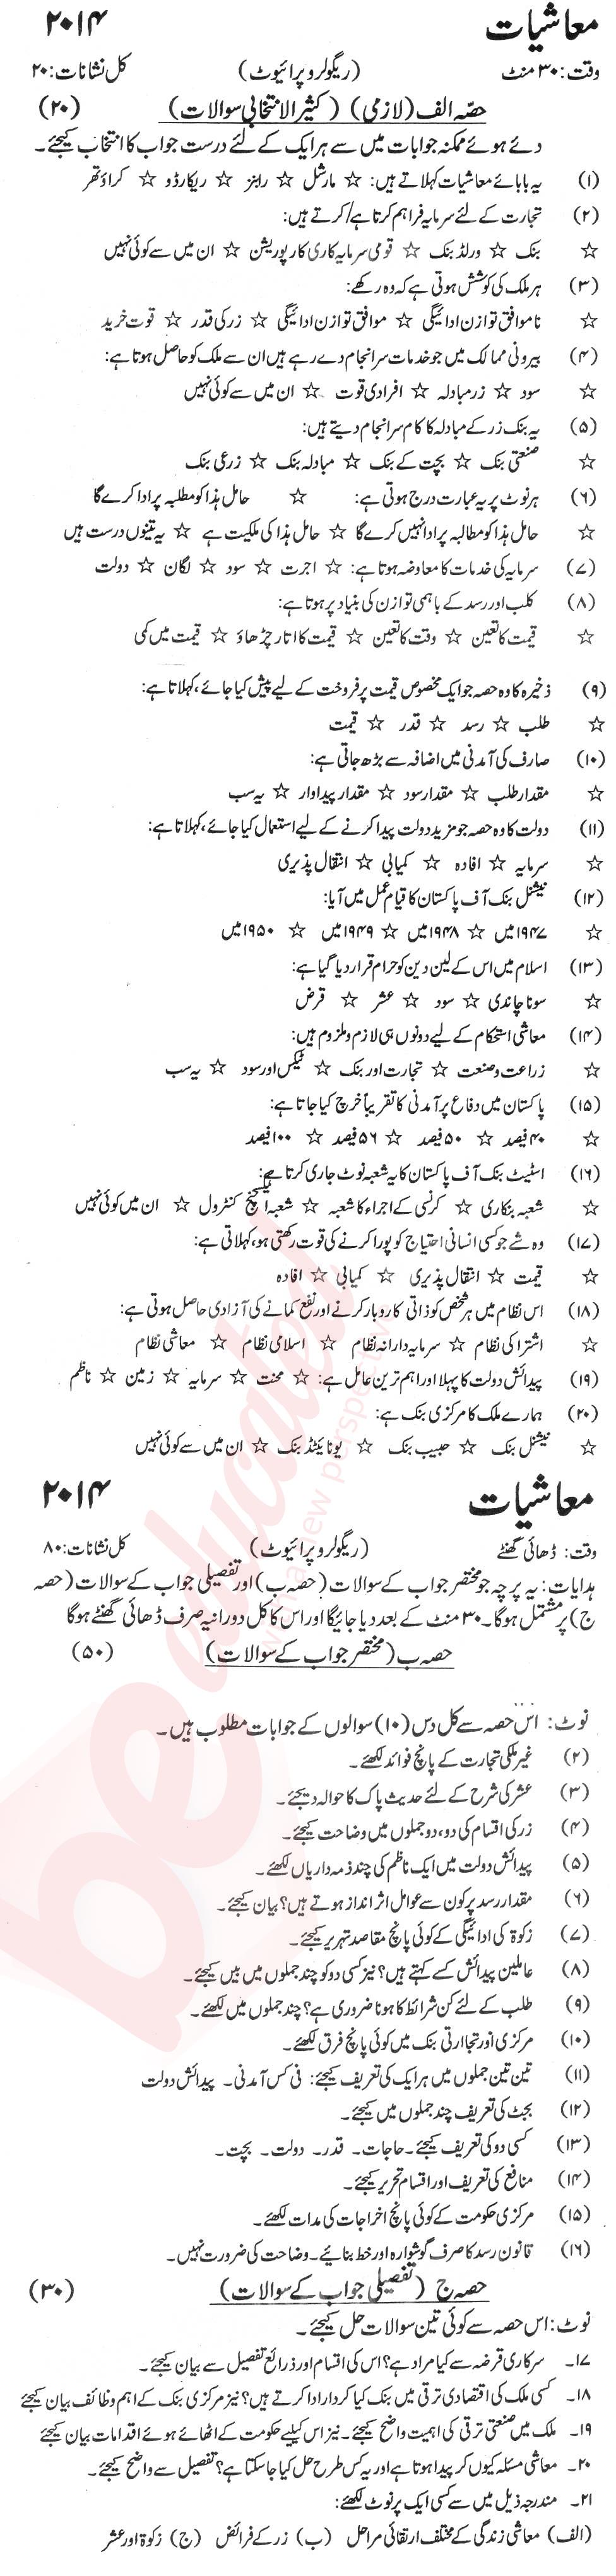 معاشیات ۲۰۱۴
وقت: ۳۰ منٹ (ریگولر و پرائیوٹ) کل نشانات: ۲۰
حصہ الف (لازمی) (کثیر الانتخابی سوالات) (۲۰)
دئے ہوئے ممکنہ جوابات میں سے ہر ایک کے لئے درست جواب کا انتخاب کیجئے۔
(۱) یہ بابائے معاشیات کہلاتے ہیں: ☆ مارشل ☆ رابنز ☆ ریکارڈو ☆ کراؤتھر
(۲) تجارت کے لئے سرمایہ فراہم کرتا ہے/کرتے ہیں:
☆ بنک ☆ ورلڈ بنک ☆ قومی سرمایہ کاری کارپوریشن ☆ ان میں سے کوئی نہیں
(۳) ہر ملک کی کوشش ہوتی ہے کہ وہ رکھے:
☆ ناموافق توازن ادائیگی ☆ موافق توازن ادائیگی ☆ زر کی قدر ☆ قوت خرید
(۴) بیرونی ممالک میں جو خدمات سرانجام دے رہے ہیں ان سے ملک کو حاصل ہوتا ہے:
☆ سود ☆ زرمبادلہ ☆ افرادی قوت ☆ ان میں سے کوئی نہیں
(۵) یہ بنک زر کے مبادلہ کا کام سرانجام دیتے ہیں:
☆ صنعتی بنک ☆ بچت کے بنک ☆ مبادلہ بنک ☆ زرعی بنک
(۶) ہر نوٹ پر یہ عبارت درج ہوتی ہے: ☆ حامل ہذا کو مطلبہ پر ادا کرے گا
☆ حامل ہذا کو مطالبہ پر ادا نہیں کرے گا ☆ حامل ہذا کی ملکیت ہے ☆ یہ تینوں درست ہیں
(۷) سرمایہ کی خدمات کا معاوضہ ہوتا ہے: ☆ اجرت ☆ سود ☆ لگان ☆ دولت
(۸) کلب اور رسد کے باہمی توازن کی بنیاد پر ہوتا ہے:
☆ قیمت کا تعین ☆ وقت کا تعین ☆ قیمت کا اتار چڑھاؤ ☆ قیمت میں کمی
(۹) ذخیرہ کا وہ حصہ جو ایک مخصوص قیمت پر فروخت کے لیے پیش کیا جائے، کہلاتا ہے:
☆ طلب ☆ رسد ☆ قدر ☆ قیمت
(۱۰) صارف کی آمدنی میں اضافہ سے بڑھ جاتی ہے:
☆ مقدار طلب ☆ مقدار سود ☆ مقدار پیداوار ☆ یہ سب
(۱۱) دولت کا وہ حصہ جو مزید دولت پیدا کرنے کے لیے استعمال کیا جائے، کہلاتا ہے:
☆ سرمایہ ☆ افادہ ☆ کمیابی ☆ انتقال پذیری
(۱۲) نیشنل بنک آف پاکستان کا قیام عمل میں آیا:
☆ ۱۹۴۷ میں ☆ ۱۹۴۸ میں ☆ ۱۹۴۹ میں ☆ ۱۹۵۰ میں
(۱۳) اسلام میں اس کے لین دین کو حرام قرار دیا گیا ہے:
☆ سونا چاندی ☆ سود ☆ عشر ☆ قرض
(۱۴) معاشی استحکام کے لیے دونوں ہی لازم و ملزوم ہیں:
☆ زراعت و صنعت ☆ تجارت اور بنک ☆ ٹیکس اور سود ☆ یہ سب
(۱۵) پاکستان میں دفاع پر آمدنی کا تقریباً خرچ کیا جاتا ہے:
☆ ۴۰ فیصد ☆ ۵۰ فیصد ☆ ۵۶ فیصد ☆ ۱۰۰ فیصد
(۱۶) اسٹیٹ بنک آف پاکستان کا یہ شعبہ نوٹ جاری کرتا ہے:
☆ شعبہ بنکاری ☆ کرنسی کے اجراء کا شعبہ ☆ شعبہ ایکسچینج کنٹرول ☆ ان میں کوئی نہیں
(۱۷) وہ شے جو کسی انسانی احتیاج کو پورا کرنے کی قوت رکھتی ہو، کہلاتی ہے:
☆ قیمت ☆ انتقال پذیری ☆ کمیابی ☆ افادہ
(۱۸) اس نظام میں ہر شخص کو ذاتی کاروبار کرنے اور نفع کمانے کی آزادی حاصل ہوتی ہے:
☆ اشتراکی نظام ☆ سرمایہ دارانہ نظام ☆ اسلامی نظام ☆ معاشی نظام
(۱۹) پیدائش دولت کا پہلا اور اہم ترین عامل ہے: ☆ محنت ☆ سرمایہ ☆ زمین ☆ ناظم
(۲۰) ہمارے ملک کا مرکزی بنک ہے:
☆ نیشنل بنک ☆ حبیب بنک ☆ یونائیٹڈ بنک ☆ ان میں سے کوئی نہیں
معاشیات ۲۰۱۴
وقت: ڈھائی گھنٹے (ریگولر و پرائیوٹ) کل نشانات: ۸۰
ہدایات: یہ پرچہ جو مختصر جواب کے سوالات (حصہ ب) اور تفصیلی جواب کے سوالات (حصہ
ج) پر مشتمل ہوگا۔ ۳۰ منٹ کے بعد دیا جائیگا اور اس کا کل دورانیہ صرف ڈھائی گھنٹے ہوگا
حصہ ب (مختصر جواب کے سوالات) (۵۰)
نوٹ: اس حصہ سے کل دس (۱۰) سوالوں کے جوابات مطلوب ہیں۔
(۲) غیر ملکی تجارت کے پانچ فوائد لکھئے۔
(۳) عشر کی شرح کے لئے حدیث پاک کا حوالہ دیجئے۔
(۴) زر کی اقسام کی دو، دو جملوں میں وضاحت کیجئے۔
(۵) پیدائش دولت میں ایک ناظم کی چند ذمہ داریاں لکھئے۔
(۶) مقدار رسد پر کون سے عوامل اثر انداز ہوتے ہیں؟ بیان کیجئے۔
(۷) زکوۃ کی ادائیگی کے کوئی پانچ مقاصد تہریر کیجئے۔
(۸) عاملین پیدائش کسے کہتے ہیں؟ نیز کسی دو کو چند جملوں میں بیں کیجئے۔
(۹) طلب کے لئے کن شرائط کا ہونا ضروری ہے؟ چند جملوں میں لکھئے۔
(۱۰) مرکزی اور تجاارتی بنک میں کوئی پانچ فرق لکھئے۔
(۱۱) تین تین جملوں میں ہر ایک کی تعریف کیجئے: فی کس آمدنی۔ پیدائش دولت
(۱۲) بجٹ کی تعریف چند جملوں میں کیجئے۔
(۱۳) کسی دو کی تعریف کیجئے۔ حاجات۔ قدر۔ دولت۔ بچت۔
(۱۴) منافع کی تعریف اور اقسام تحریر کیجئے۔
(۱۵) مرکزی حکومت کے کوئی پانچ اخراجات کی مدات لکھئے۔
(۱۶) قانون رسد کا صرف گوشوارہ اور خط بنائیے۔ وضاحت کی ضرورت نہیں۔
حصہ ج (تفصیلی جواب کے سوالات) (۳۰)
نوٹ: اس حصہ سے کوئی تین سوالات حل کیجئے۔
۱۷۔ سرکاری قرضہ سے کیا مراد ہے؟ اس کی اقسام اور ذرائع تفصیل سے بیان کیجئے۔
۱۸۔ کسی ملک کی اقتصادی ترقی میں بنک کیا کردار ادا کرتے ہیں؟ نیز مرکزی بنک کے اہم وظائف بیان کیجئے
۱۹۔ ملک میں صنعتی ترقی کی اہمیت واضح کیجئے۔ نیز اس کیلیے حکومت کے اٹھائے ہوئے اقدامات بیان کیجئے
۲۰۔ معاشی مسئلہ کیوں کر پیدا ہوتا ہے اور یہ کس طرح حل کیا جاسکتا ہے؟ تفصیل سے واضح کیجئے۔
۲۱۔ مندرجہ ذیل میں سے کسی ایک پر نوٹ لکھئے:
(الف) معاشی زندگی کے مختلف ارتقائی مراحل (ب) زر کے فرائض (ج) زکوۃ اور عشر
be educated
with a new perspective